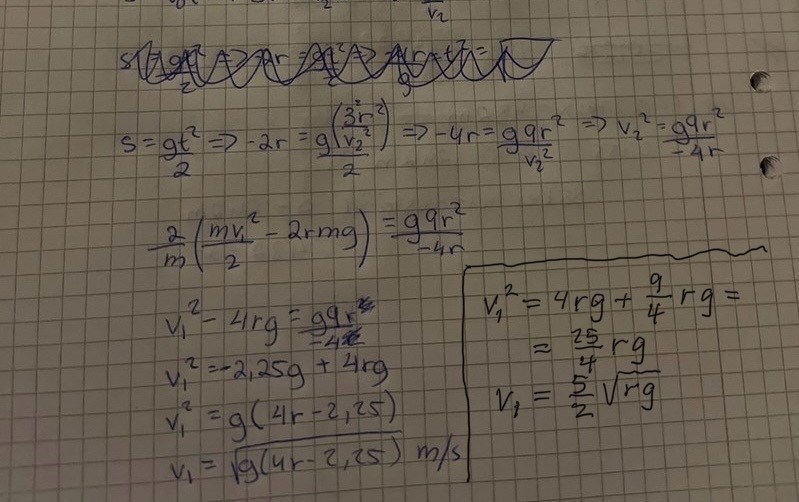 v₂
s = gt²/2 => -2r = g(3²r²/v₂²)/2 => -4r = g9r²/v₂² => v₂² = g9r²/-4r
2/m (mv₁²/2 - 2rmg) = g9r²/-4r
v₁² - 4rg = g9r²/-4r
v₁² = -2,25g + 4rg
v₁² = g(4r - 2,25)
v₁ = √(g(4r - 2,25)) m/s
v₁² = 4rg + 9/4 rg =
= 25/4 rg
v₁ = 5/2 √rg